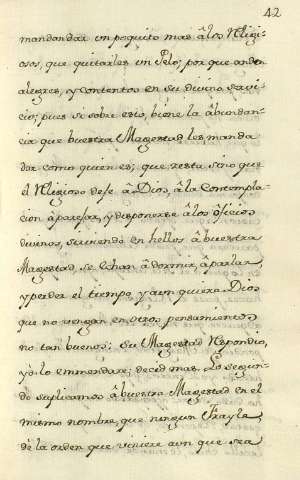 42
mandandar un poquito mas â los Religi-
osos, que quitarles un Pelo; por que anden
alegres, y contentos en su divino servi-
cio; pues se sobre esto, biene la âbundan-
cia que buestra Magestad les manda
dar como quien es; que resta sino que
el Religioso deje â Dios, â la Contempla-
cion âparejar, y disponerse â los ôficios
divinos, sirviendo en hellos â buestra
Magestad, se echan â dormir, âparlar,
y perder el tiempo y aun quiera Dios
que no vengan en otros pensamientos
no tan buenos; su Magestad Respondio,
yò lo emmendare; decid mas. Lo segun-
do suplicamos â buestra Magestad en el
mismo nombre, que ningun Frayle,
de la orden que viniere aun que sea